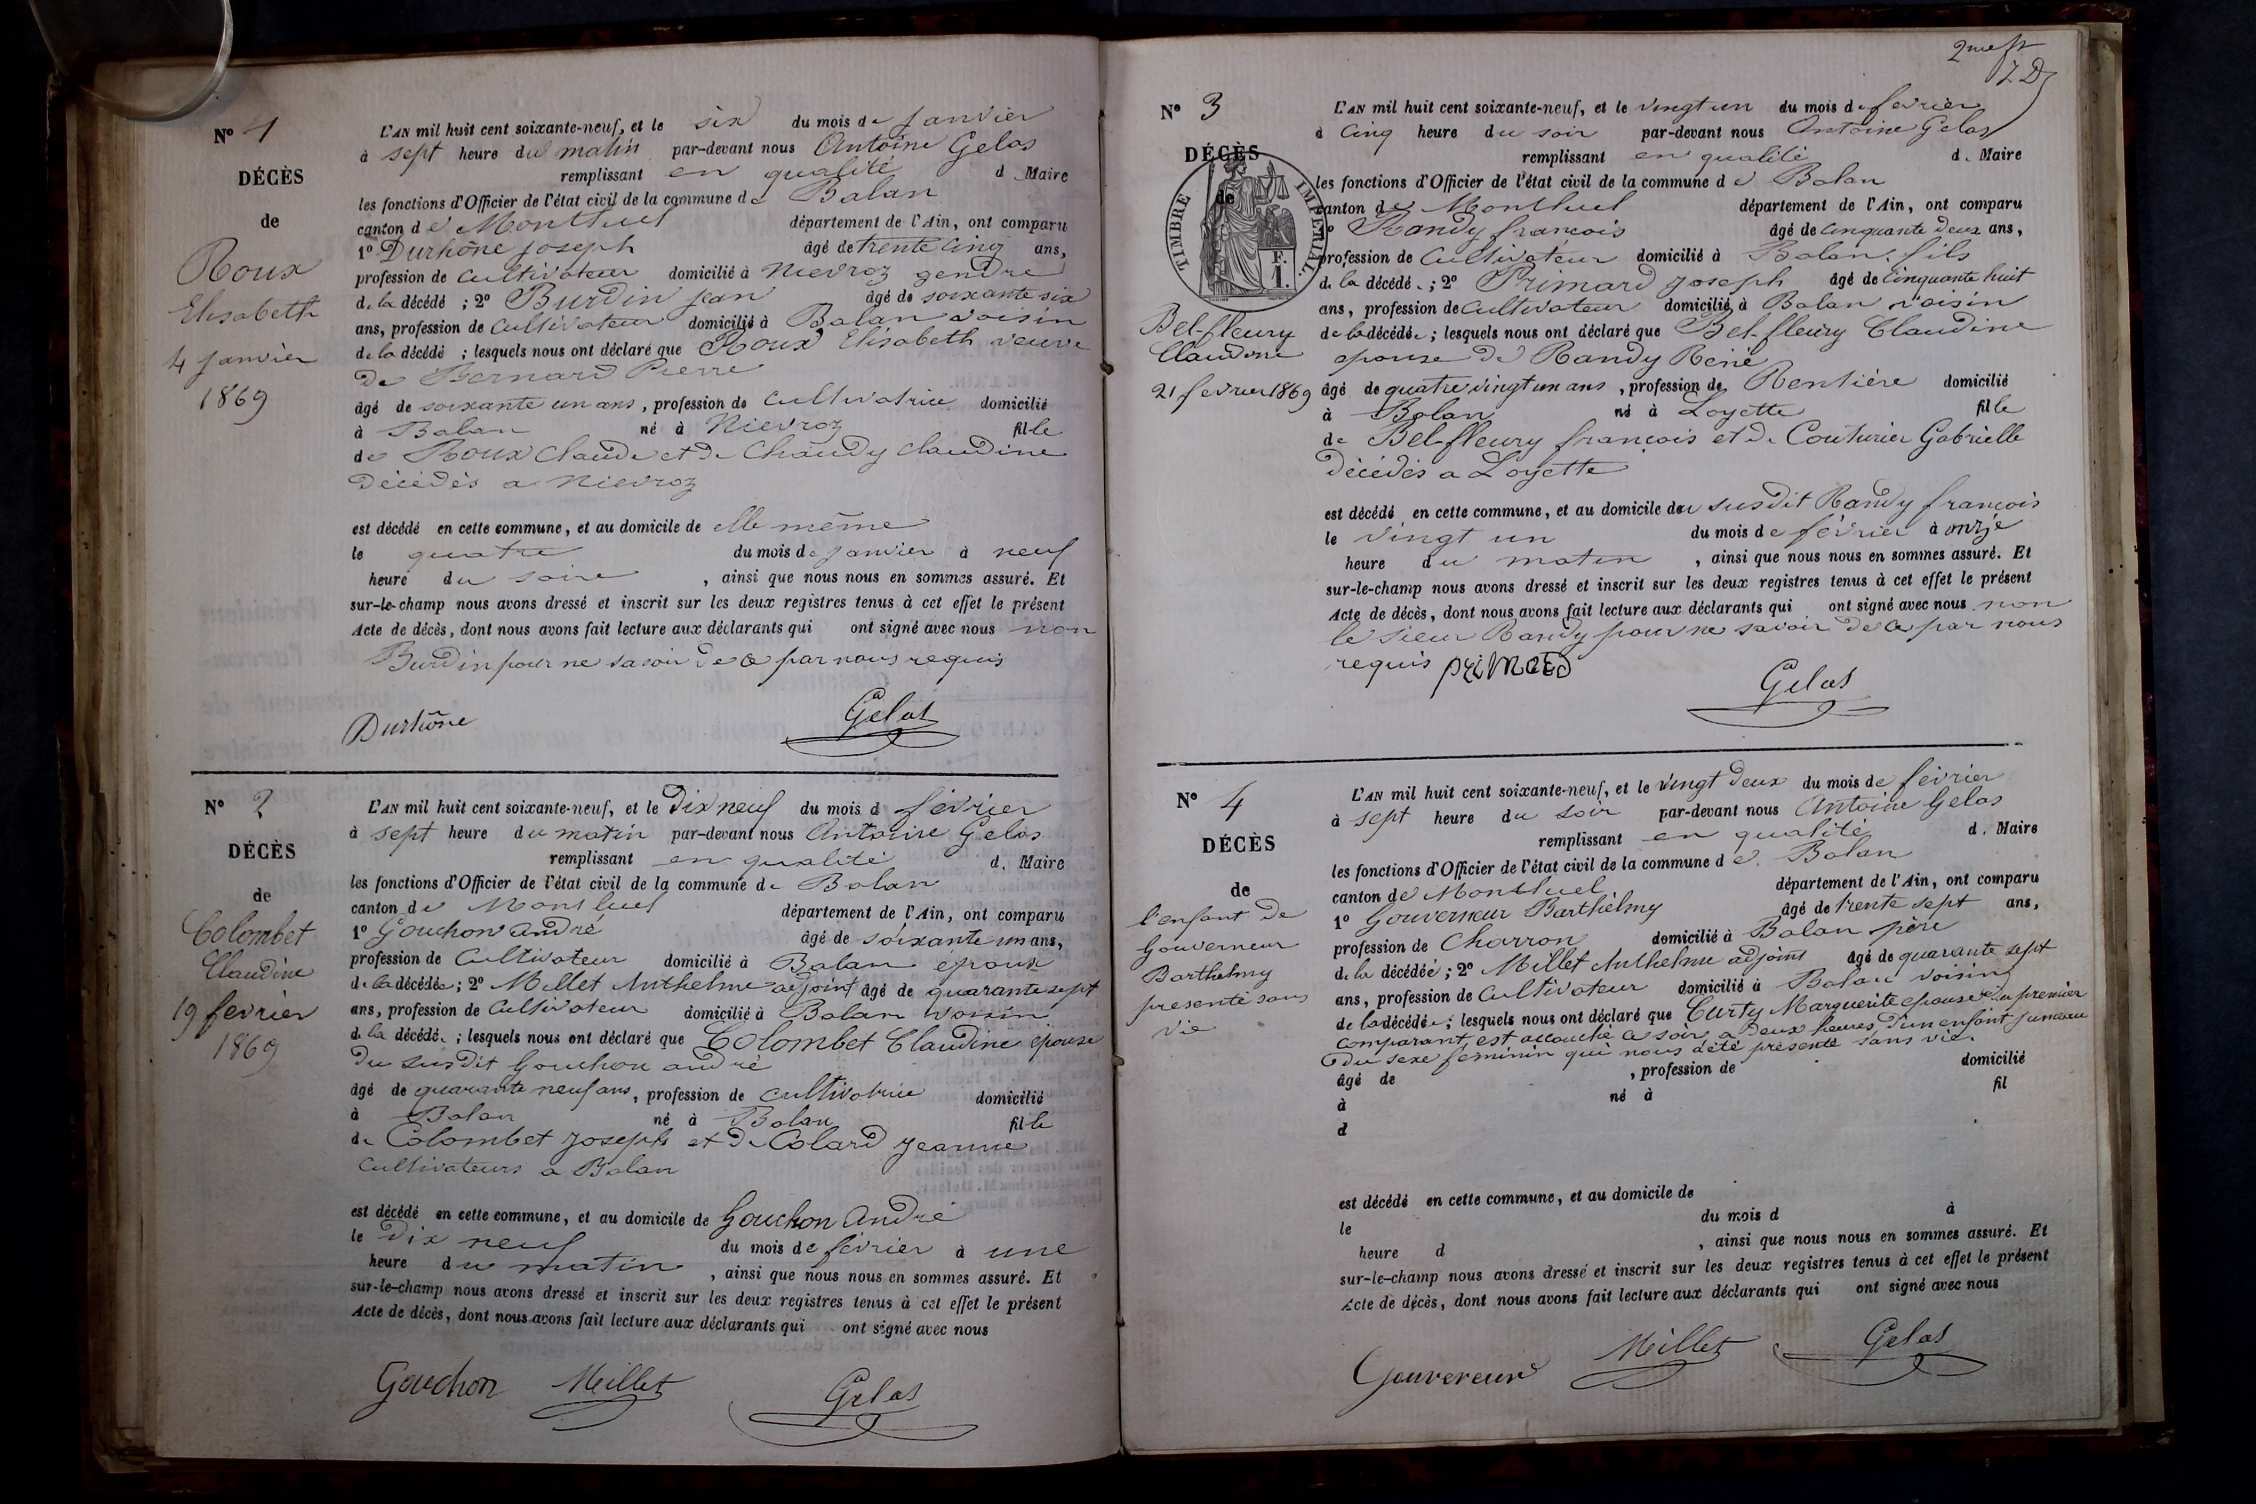 N° 1
DÉCÈS
de
Roux
Elisabeth
4 janvier
1869
L'AN mil huit cent soixante-neuf, et le six du mois de janvier
à sept heure du matin par-devant nous Antoine Gelas
remplissant en qualité d Maire
les fonctions d'Officier de l'état civil de la commune de Balan
canton de Montluel département de l'Ain, ont comparu
1° Durhône joseph âgé de trente cinq ans,
profession de cultivateur domicilié à Nievroz gendre
de la décédé ; 2° Burdin jean âgé de soixante six
ans, profession de cultivateur domicilié à Balan voisin
de la décédé ; lesquels nous ont déclaré que Roux Elisabeth veuve
de Bernard Pierre
âgé de soixante un ans, profession de cultivatrice domicilié
à Balan né à Nievroz fille
de Roux Claude et de Chaudy Claudine
décédés a Nievroz
est décédé en cette commune, et au domicile de elle même
le quatre du mois de janvier à neuf
heure du soire , ainsi que nous nous en sommes assuré. Et
sur-le-champ nous avons dressé et inscrit sur les deux registres tenus à cet effet le présent
Acte de décès, dont nous avons fait lecture aux déclarants qui ont signé avec nous non
Burdin pour ne savoir de ce par nous requis
Durhône Gelas
N° 2
DÉCÈS
de
Colombet
Claudine
19 fevrier
1869
L'AN mil huit cent soixante-neuf, et le dix neuf du mois d février
à sept heure du matin par-devant nous Antoine Gelas
remplissant en qualité d. Maire
les fonctions d'Officier de l'état civil de la commune de Balan
canton de Montluel département de l'Ain, ont comparu
1° Gouchon andré âgé de soixante un ans,
profession de Cultivateur domicilié à Balan epoux
de la décédée ; 2° Millet Anthelme adjoint âgé de quarante sept
ans, profession de Cultivateur domicilié à Balan voisin
de la décédé. ; lesquels nous ont déclaré que Colombet Claudine épouse
du susdit Gouchon andré
âgé de quarante neuf ans, profession de cultivatrice domicilié
à Balan né à Balan fille
de Colombet joseph et de Colard jeanne
Cultivateurs a Balan
est décédé en cette commune, et au domicile de Gouchon André
le dix neuf du mois de février à une
heure du matin , ainsi que nous nous en sommes assuré. Et
sur-le-champ nous avons dressé et inscrit sur les deux registres tenus à cet effet le présent
Acte de décès, dont nous avons fait lecture aux déclarants qui ont signé avec nous
Gouchon Millet Gelas
2me
N° 3
DÉCÈS
de
TIMBRE IMPÉRIAL.
F. 1.
Bel-fleury
Claudine
21 fevrier 1869
L'AN mil huit cent soixante-neuf, et le vingt un du mois de fevrier
à Cinq heure du soir par-devant nous Antoine Gelas
remplissant en qualité d. Maire
les fonctions d'Officier de l'état civil de la commune de Balan
canton de Montluel département de l'Ain, ont comparu
Randy francois âgé de cinquante deux ans,
profession de Cultivateur domicilié à Balan fils
de la décédé. ; 2° Primard joseph âgé de cinquante huit
ans, profession de Cultivateur domicilié à Balan voisin
de la décédée ; lesquels nous ont déclaré que Bel-fleury Claudine
epouse de Randy René
âgé de quatre vingt un ans, profession de Rentière domicilié
à Balan né à Loyette fille
de Bel-fleury françois et de Couturier Gabrielle
décédés a Loyette
est décédé en cette commune, et au domicile du susdit Randy francois
le vingt un du mois de février à onze
heure du matin , ainsi que nous nous en sommes assuré. Et
sur-le-champ nous avons dressé et inscrit sur les deux registres tenus à cet effet le présent
Acte de décès, dont nous avons fait lecture aux déclarants qui ont signé avec nous non
le sieur Randy pour ne savoir de ce par nous
requis Primard Gelas
N° 4
DÉCÈS
de
l'enfant de
Gouverneur
Barthelmy
presenté sans
vie
L'AN mil huit cent soixante-neuf, et le vingt deux du mois de février
à sept heure du soir par-devant nous Antoine Gelas
remplissant en qualité d. Maire
les fonctions d'Officier de l'état civil de la commune de Balan
canton de Montluel département de l'Ain, ont comparu
1° Gouverneur Barthélmy âgé de trente sept ans,
profession de Charron domicilié à Balan père
de la décédéé ; 2° Millet Anthelme adjoint âgé de quarante sept
ans, profession de Cultivateur domicilié à Balan voisin
de la décédée ; lesquels nous ont déclaré que Curty Marguerite epouse du premier
comparant, est accouché ce soir, a deux heures, d'un enfant jumeau
du sexe féminin qui nous a été présenté sans vie.
âgé de , profession de domicilié
à né à fil
d
est décédé en cette commune, et au domicile de
le du mois d à
heure d , ainsi que nous nous en sommes assuré. Et
sur-le-champ nous avons dressé et inscrit sur les deux registres tenus à cet effet le présent
Acte de décès, dont nous avons fait lecture aux déclarants qui ont signé avec nous
Gouverneur Millet Gelas